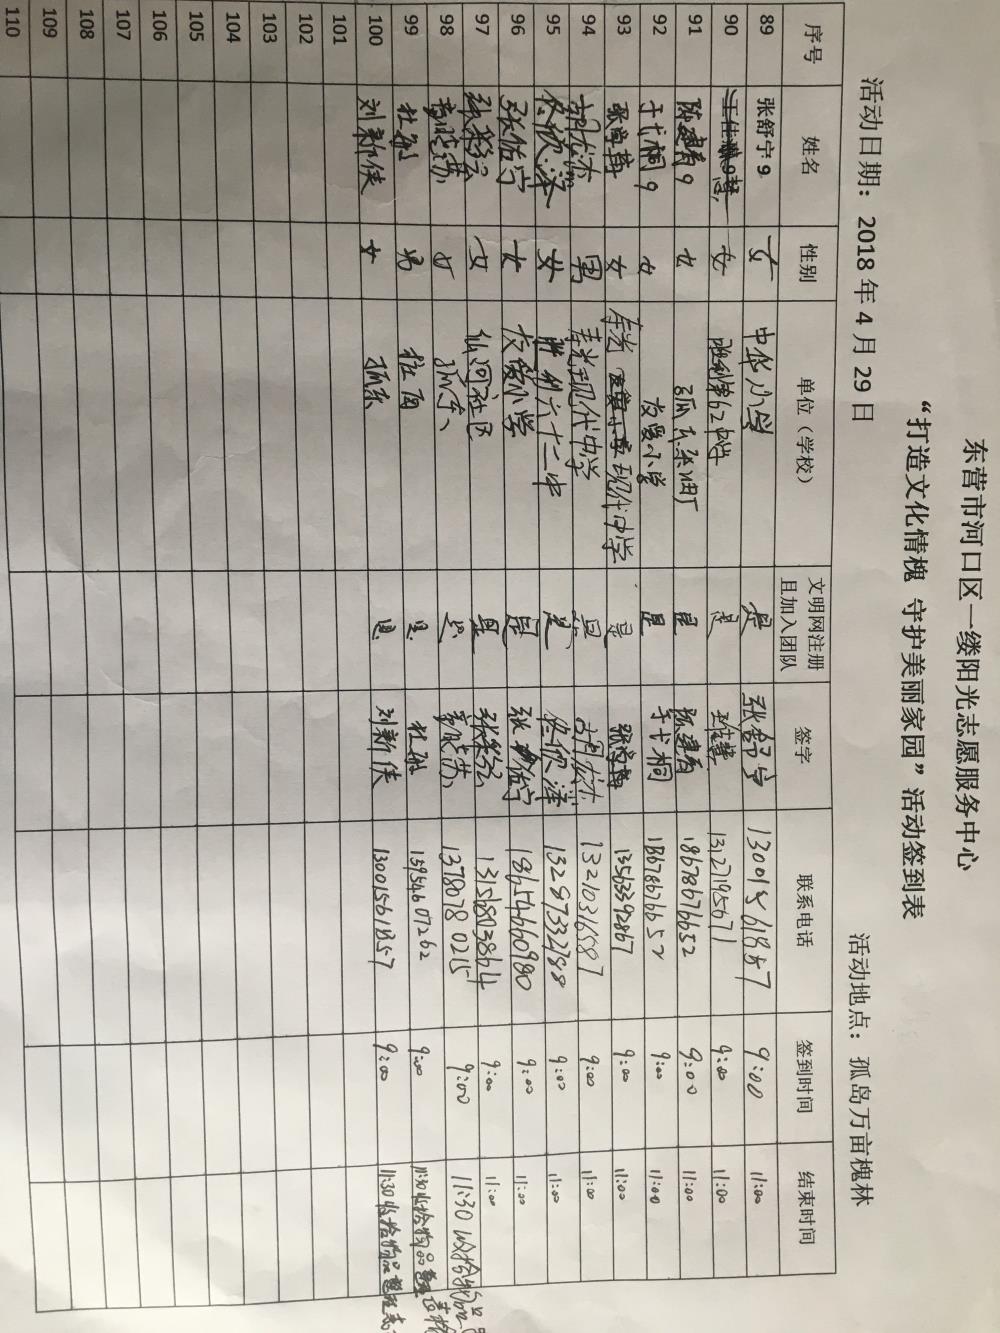 东营市河口区一缕阳光志愿服务中心
“打造文化情槐 守护美丽家园”活动签到表
活动日期：2018 年 4 月 29 日 活动地点：孤岛万亩槐林
序号 姓名 性别 单位（学校） 文明网注册且加入团队 签字 联系电话 签到时间 结束时间
89 张舒宁9 女 中华小学 是 张舒宁 13001561857 9:00 11:00
90 女 胜利第62中学 是 13127195671 9:00 11:00
91 陈建秀9 女 孤东采油厂 是 陈建秀 18678676652 9:00 11:00
92 于弋桐9 女 友爱小学 是 于弋桐 18678676652 9:00 11:00
93 女 现代中学 是 13563392867 9:00 11:00
94 男 寿光现代中学 是 13210316587 9:00 11:00
95 佟欣泽 女 胜利六十二中 是 佟欣泽 13287332788 9:00 11:00
96 张佑宁 女 友爱小学 是 张佑宁 18654660980 9:00 11:00
97 女 仙河社区 是 13156803864 9:00 11:00
98 女 孤东 是 13780780215 9:00 11:30
99 杜敏 男 是 杜敏 15954607262 9:00 11:30收拾物品
100 刘新侠 女 孤东 是 刘新侠 13001561857 9:00 11:30收拾物品
101
102
103
104
105
106
107
108
109
110